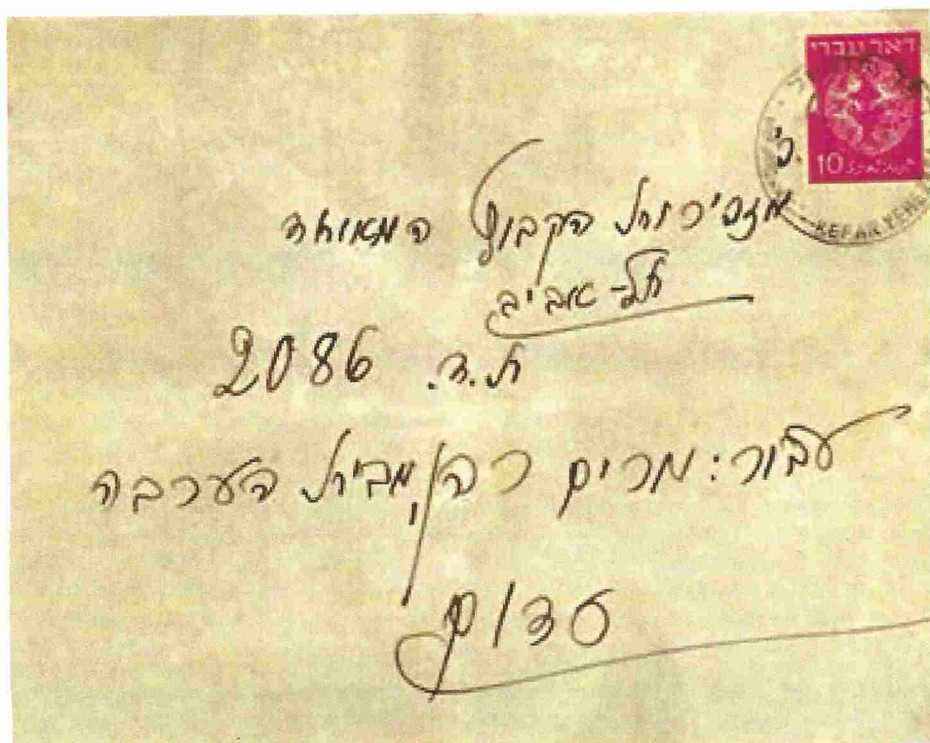 דאר עברי
10
KEFAR YEHE
מזכירות הקבוץ המאוחד
תל-אביב
ת.ד. 2086
עבור: מרים כהן, מבית הערבה
סדום